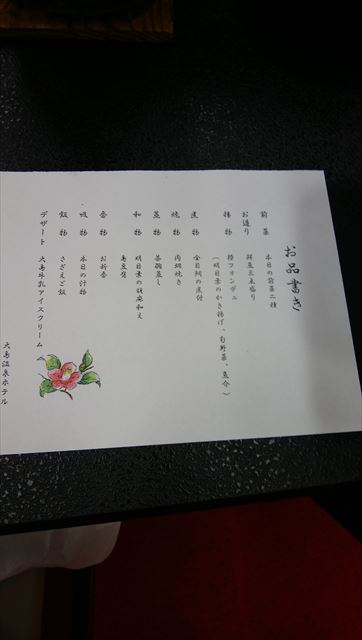 お品書き
前菜 本日の前菜二種
お造り 鮮魚三点盛り
揚物 椿フォンデュ
(明日葉のかき揚げ、旬野菜、魚介)
煮物 金目鯛の煮付
焼物 肉朝焼き
蒸物 茶碗蒸し
和物 明日葉の胡麻和え
島豆腐
香物 お新香
吸物 本日の汁物
飯物 さざえご飯
デザート 大島牛乳アイスクリーム
大島温泉ホテル